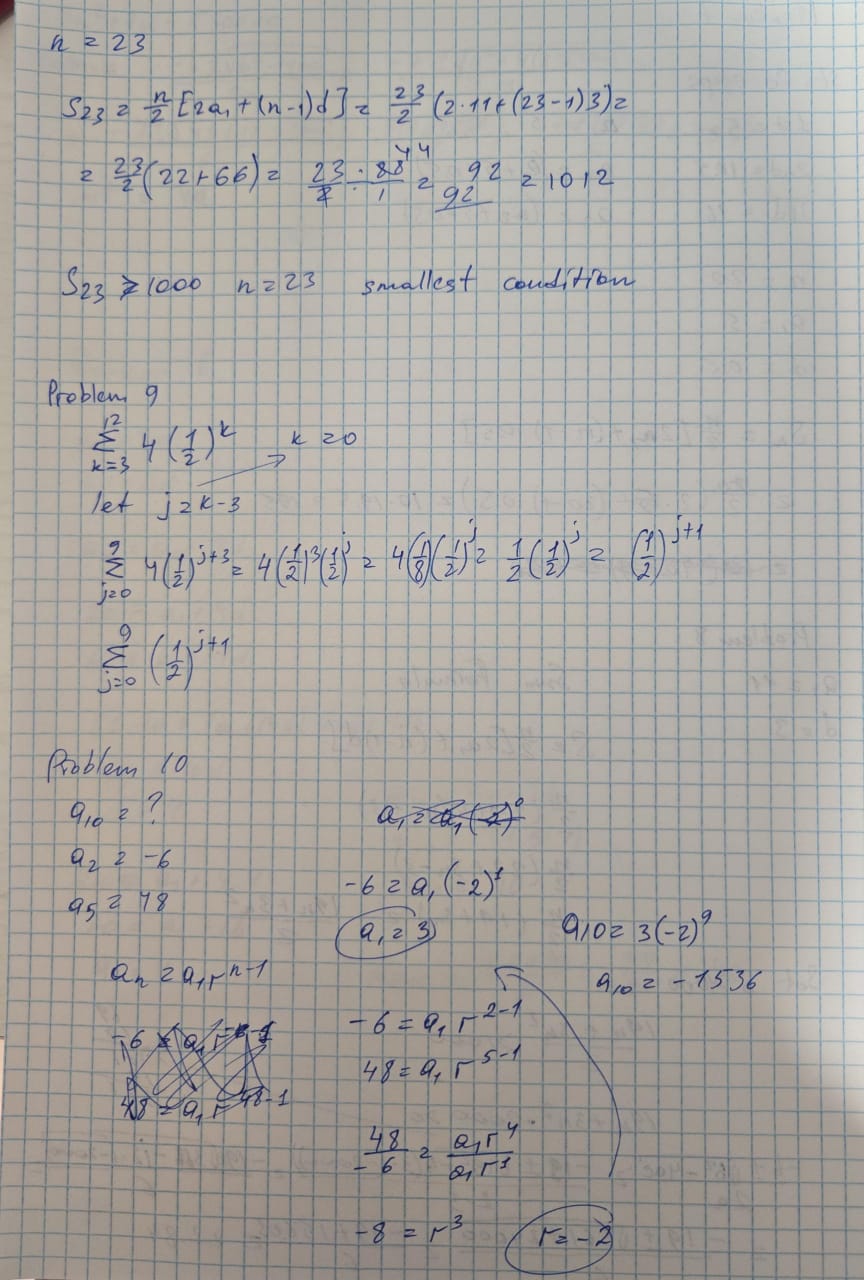 n = 23
S₂₃ = n/2 [2a₁ + (n-1)d] = 23/2 (2·11 + (23-1)3) =
= 23/2 (22+66) = 23/2 · 88/1 44 = 92 92 = 1012
S₂₃ > 1000 n = 23 smallest condition
Problem 9
12 Σ k=3 4(1/2)^k k = 0
let j = k-3
9 Σ j=0 4(1/2)^(j+3) = 4(1/2)^3 (1/2)^j = 4(1/8)(1/2)^j = 1/2 (1/2)^j = (1/2)^(j+1)
9 Σ j=0 (1/2)^(j+1)
Problem 10
a₁₀ = ?
a₂ = -6
a₅ = 48
aₙ = a₁r^(n-1)
-6 = a₁(-2)^1
a₁ = 3
-6 = a₁ r^(2-1)
48 = a₁ r^(5-1)
48/-6 = a₁r^4/a₁r^1
-8 = r^3 r = -2
a₁₀ = 3(-2)^9
a₁₀ = -1536